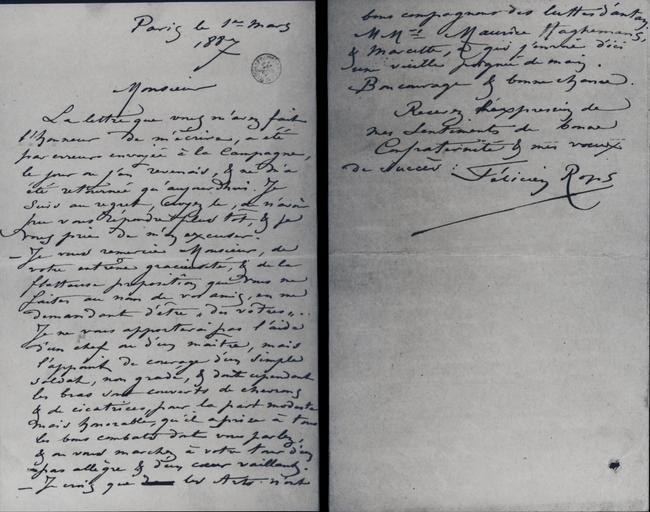 Paris le 1er Mars
1887
Monsieur
La lettre que vous m'avez fait
l'honneur de m'écrire, a été
par erreur envoyée à la Campagne,
le jour où j'en revenais, & ne m'a
été retournée qu'aujourd'hui. Je
suis au regret, croyez le, de n'avoir
pu vous répondre plus tôt, & je
vous prie de m'en excuser.
– Je vous remercie Monsieur, de
votre extrême gracieuseté, & de la
flatteuse proposition que vous me
faites au nom de vos amis, en me
demandant d'être „des vôtres"...
Je ne vous apporterai pas l'aide
d'un chef ou d'un maître, mais
l'appoint de courage d'un simple
soldat, non gradé, & dont cependant
les bras sont couverts de chevrons
& de cicatrices, pour la part modeste
mais honorable, qu'il a prise à tous
les bons combats dont vous parlez,
& où vous marchez à votre tour d'un
pas allègre & d'un cœur vaillant.
– Je crois que les Arts n'ont
bons compagnons des luttes d'antan,
M.M. Maurice Hagemans,
& Marcette, à qui j'envoie d'ici
une vieille poignée de main.
Bon courage & bonne chance.
Recevez l'expression de
mes sentiments de bonne
Confraternité & mes vœux
de succès: Félicien Rops